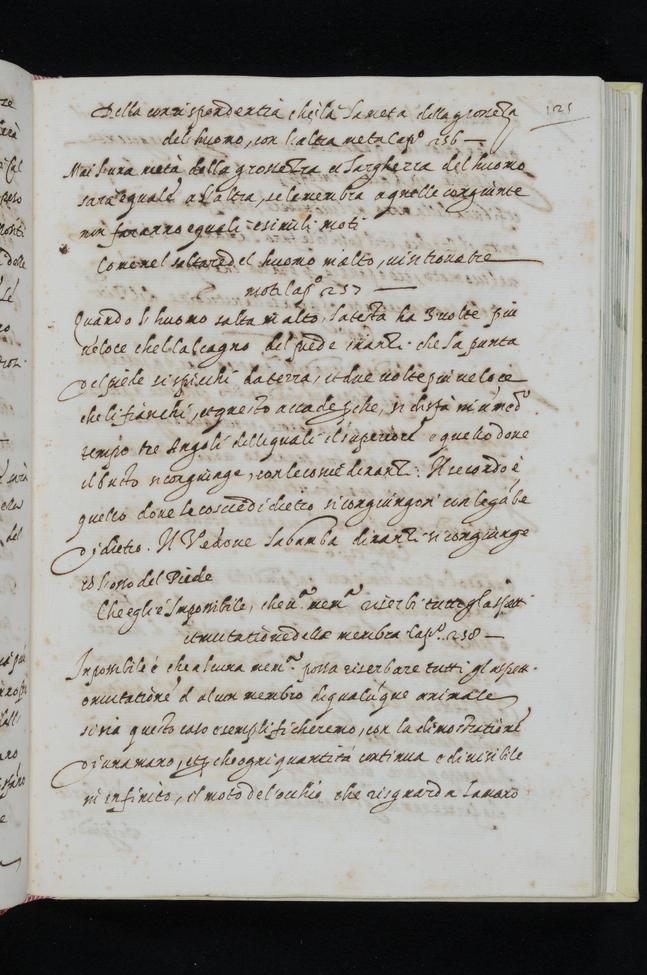 125
Della corrispondentia che ha la meta della grossezza
del huomo, con l'altra meta Cap.º 256
Mai sara metà della grossezza et larghezza del huomo
sara eguale a l'altra, se le membra a quelle congiunte
non faranno eguali e simili moti
Come nel saltare del huomo in alto, vi si trovan tre
moti Cap.º 257
Quando l'huomo salta in alto, la testa ha 3 volte piu
veloce che'l calcagno del piede inanzi che la punta
del piede si spicchi da terra, et due volte piu veloce
che li fianchi, et questo accade perche, si disfà in un med.º
tempo tre Angoli delle quali il superiore e quello dove
il busto si congiunge, con le coscie dinanzi. Il secondo è
quello dove le coscie di dietro si congiungon' con le gabe
di dietro. Il 3º è dove la gamba dinanzi si congiunge
co l'osso del Piede
Che egli é Impossibile, che una mem.ª riserbi tutti gl'aspetti
et mutatione delle membra Cap.º 258
Impossibile é che alcuna mem.ª possa riserbare tutti gl'aspetti
o mutatione d'alcun membro di qualunque animale
si sia questo caso esemplificheremo, con la dimostratione
di una mano, et perche ogni quantità continua e divisibile
in infinito, il moto del'occhio che risguarda la mano